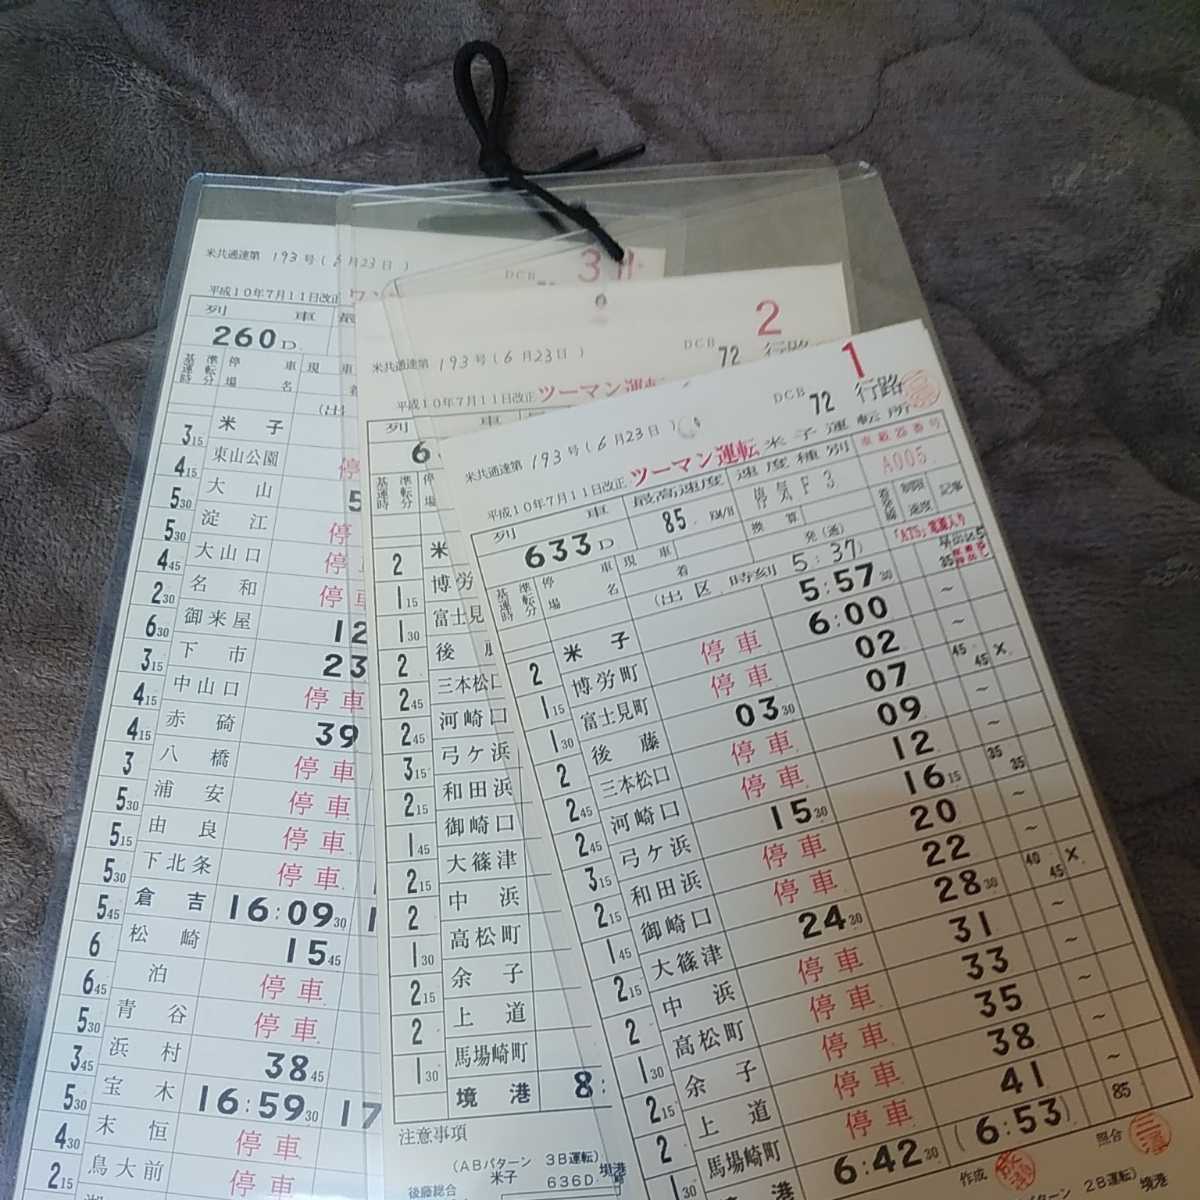 米共通達第 193 号 ( 6 月 23 日 )
平成10年7月11日改正
列 車
260D
基準運転時分 停車場名 現車
3 15 米子
4 15 東山公園 停
5 30 大山 5
5 30 淀江 停
4 45 大山口 停
2 30 名和 停
6 30 御来屋 12
3 15 下市 23
4 15 中山口 停車
4 15 赤碕 39
3 八橋 停車
5 30 浦安 停車
5 15 由良 停車
5 30 下北条 停車
5 45 倉吉 16:09 30
6 松崎 15 45
6 45 泊 停車
5 30 青谷 停車
3 45 浜村 38 45
5 30 宝木 16:59 30 17
4 30 末恒 停車
2 15 鳥大前 停車
2
DCB 72 行路
米共通達第 193 号 ( 6 月 23 日 )
平成10年7月11日改正 ツーマン運転
列 車
基準運転時分 停 場
2 米
1 15 博労
1 30 富士見
2 後藤
2 45 三本松口
2 45 河崎口
3 15 弓ケ浜
2 15 和田浜
1 45 御崎口
2 15 大篠津
2 中浜
1 30 高松町
2 15 余子
2 上道
1 30 馬場崎町
境港 8:
注意事項
(ABパターン 3B運転)
後藤総合 米子 636D 境港
1
DCB 72 行路
米共通達第 193 号 ( 6 月 23 日 )
平成10年7月11日改正 ツーマン運転 米子運転所
列 車 最高速度 速度種別 車載器番号
633D 85 KM/H 停気 F3 A005
基準運転時分 停車場名 現車 換算 着 発(通) 着発線 制限速度 記事
(出区時刻 5:37) 「ATS」電源入り
2 米子 5:57 30 35
1 15 博労町 停車 6:00 ~
1 30 富士見町 停車 02 ~
2 後藤 03 30 07 45 45 ×
2 45 三本松口 停車 09 ~
2 45 河崎口 停車 12 ~
3 15 弓ケ浜 15 30 16 15 35 35
2 15 和田浜 停車 20 ~
1 45 御崎口 停車 22 ~
2 15 大篠津 24 30 28 30 40 45 ×
2 中浜 停車 31 ~
1 30 高松町 停車 33 ~
2 15 余子 停車 35 ~
2 上道 停車 38 ~
1 30 馬場崎町 停車 41 ~
6:42 30 (6:53) 85
作成 照合
2B運転) 境港